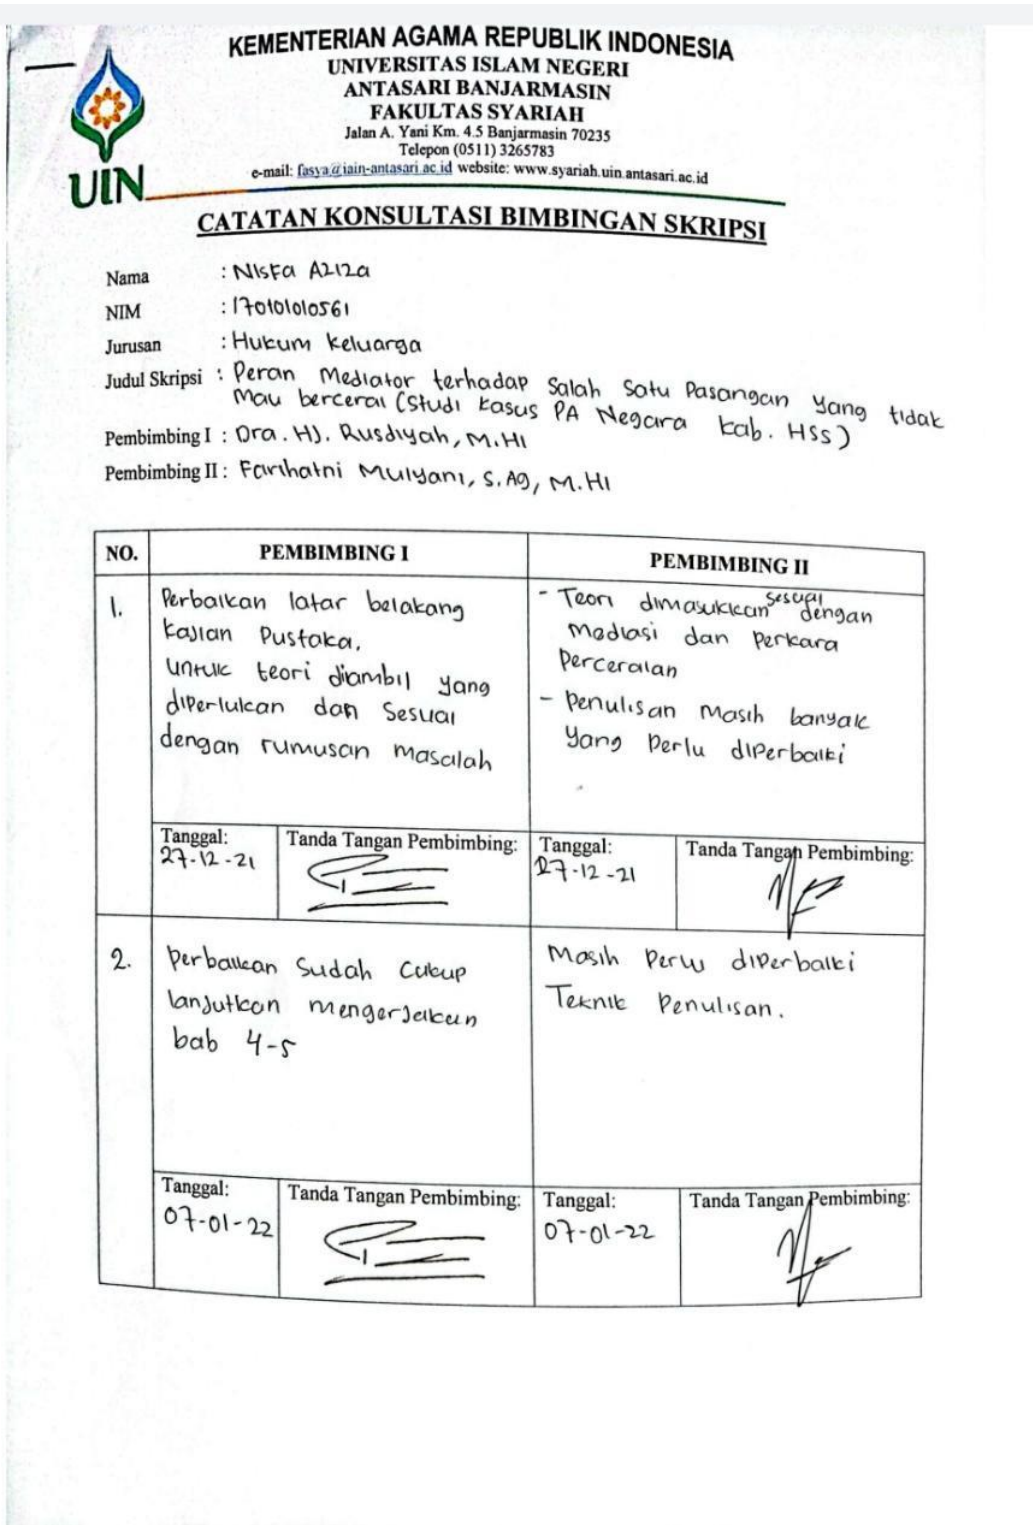 KEMENTERIAN AGAMA REPUBLIK INDONESIA
UNIVERSITAS ISLAM NEGERI
ANTASARI BANJARMASIN
FAKULTAS SYARIAH
Jalan A. Yani Km. 4.5 Banjarmasin 70235
Telepon (0511) 3265783
e-mail: fasya@iain-antasari.ac.id website: www.syariah.uin.antasari.ac.id
UIN
CATATAN KONSULTASI BIMBINGAN SKRIPSI
Nama : Nisfa Aziza
NIM : 170101010561
Jurusan : Hukum Keluarga
Judul Skripsi : Peran Mediator terhadap Salah Satu Pasangan yang tidak
Mau bercerai (Studi Kasus PA Negara Kab. HSS)
Pembimbing I : Dra. Hj. Rusdiyah, M.HI
Pembimbing II : Farihatni Mulyani, S.Ag, M.HI
NO. PEMBIMBING I PEMBIMBING II
1. Perbaikan latar belakang
Kajian Pustaka.
untuk teori diambil yang
diperlukan dan Sesuai
dengan rumusan masalah
- Teori dimasukkan sesuai dengan
Mediasi dan Perkara
Perceraian
- Penulisan Masih banyak
yang Perlu diperbaiki
Tanggal: Tanda Tangan Pembimbing: Tanggal: Tanda Tangan Pembimbing:
27-12-21 27-12-21
2. Perbaikan Sudah Cukup
lanjutkan mengerjakan
bab 4-5
Masih Perlu diperbaiki
Teknik Penulisan.
Tanggal: Tanda Tangan Pembimbing: Tanggal: Tanda Tangan Pembimbing:
07-01-22 07-01-22